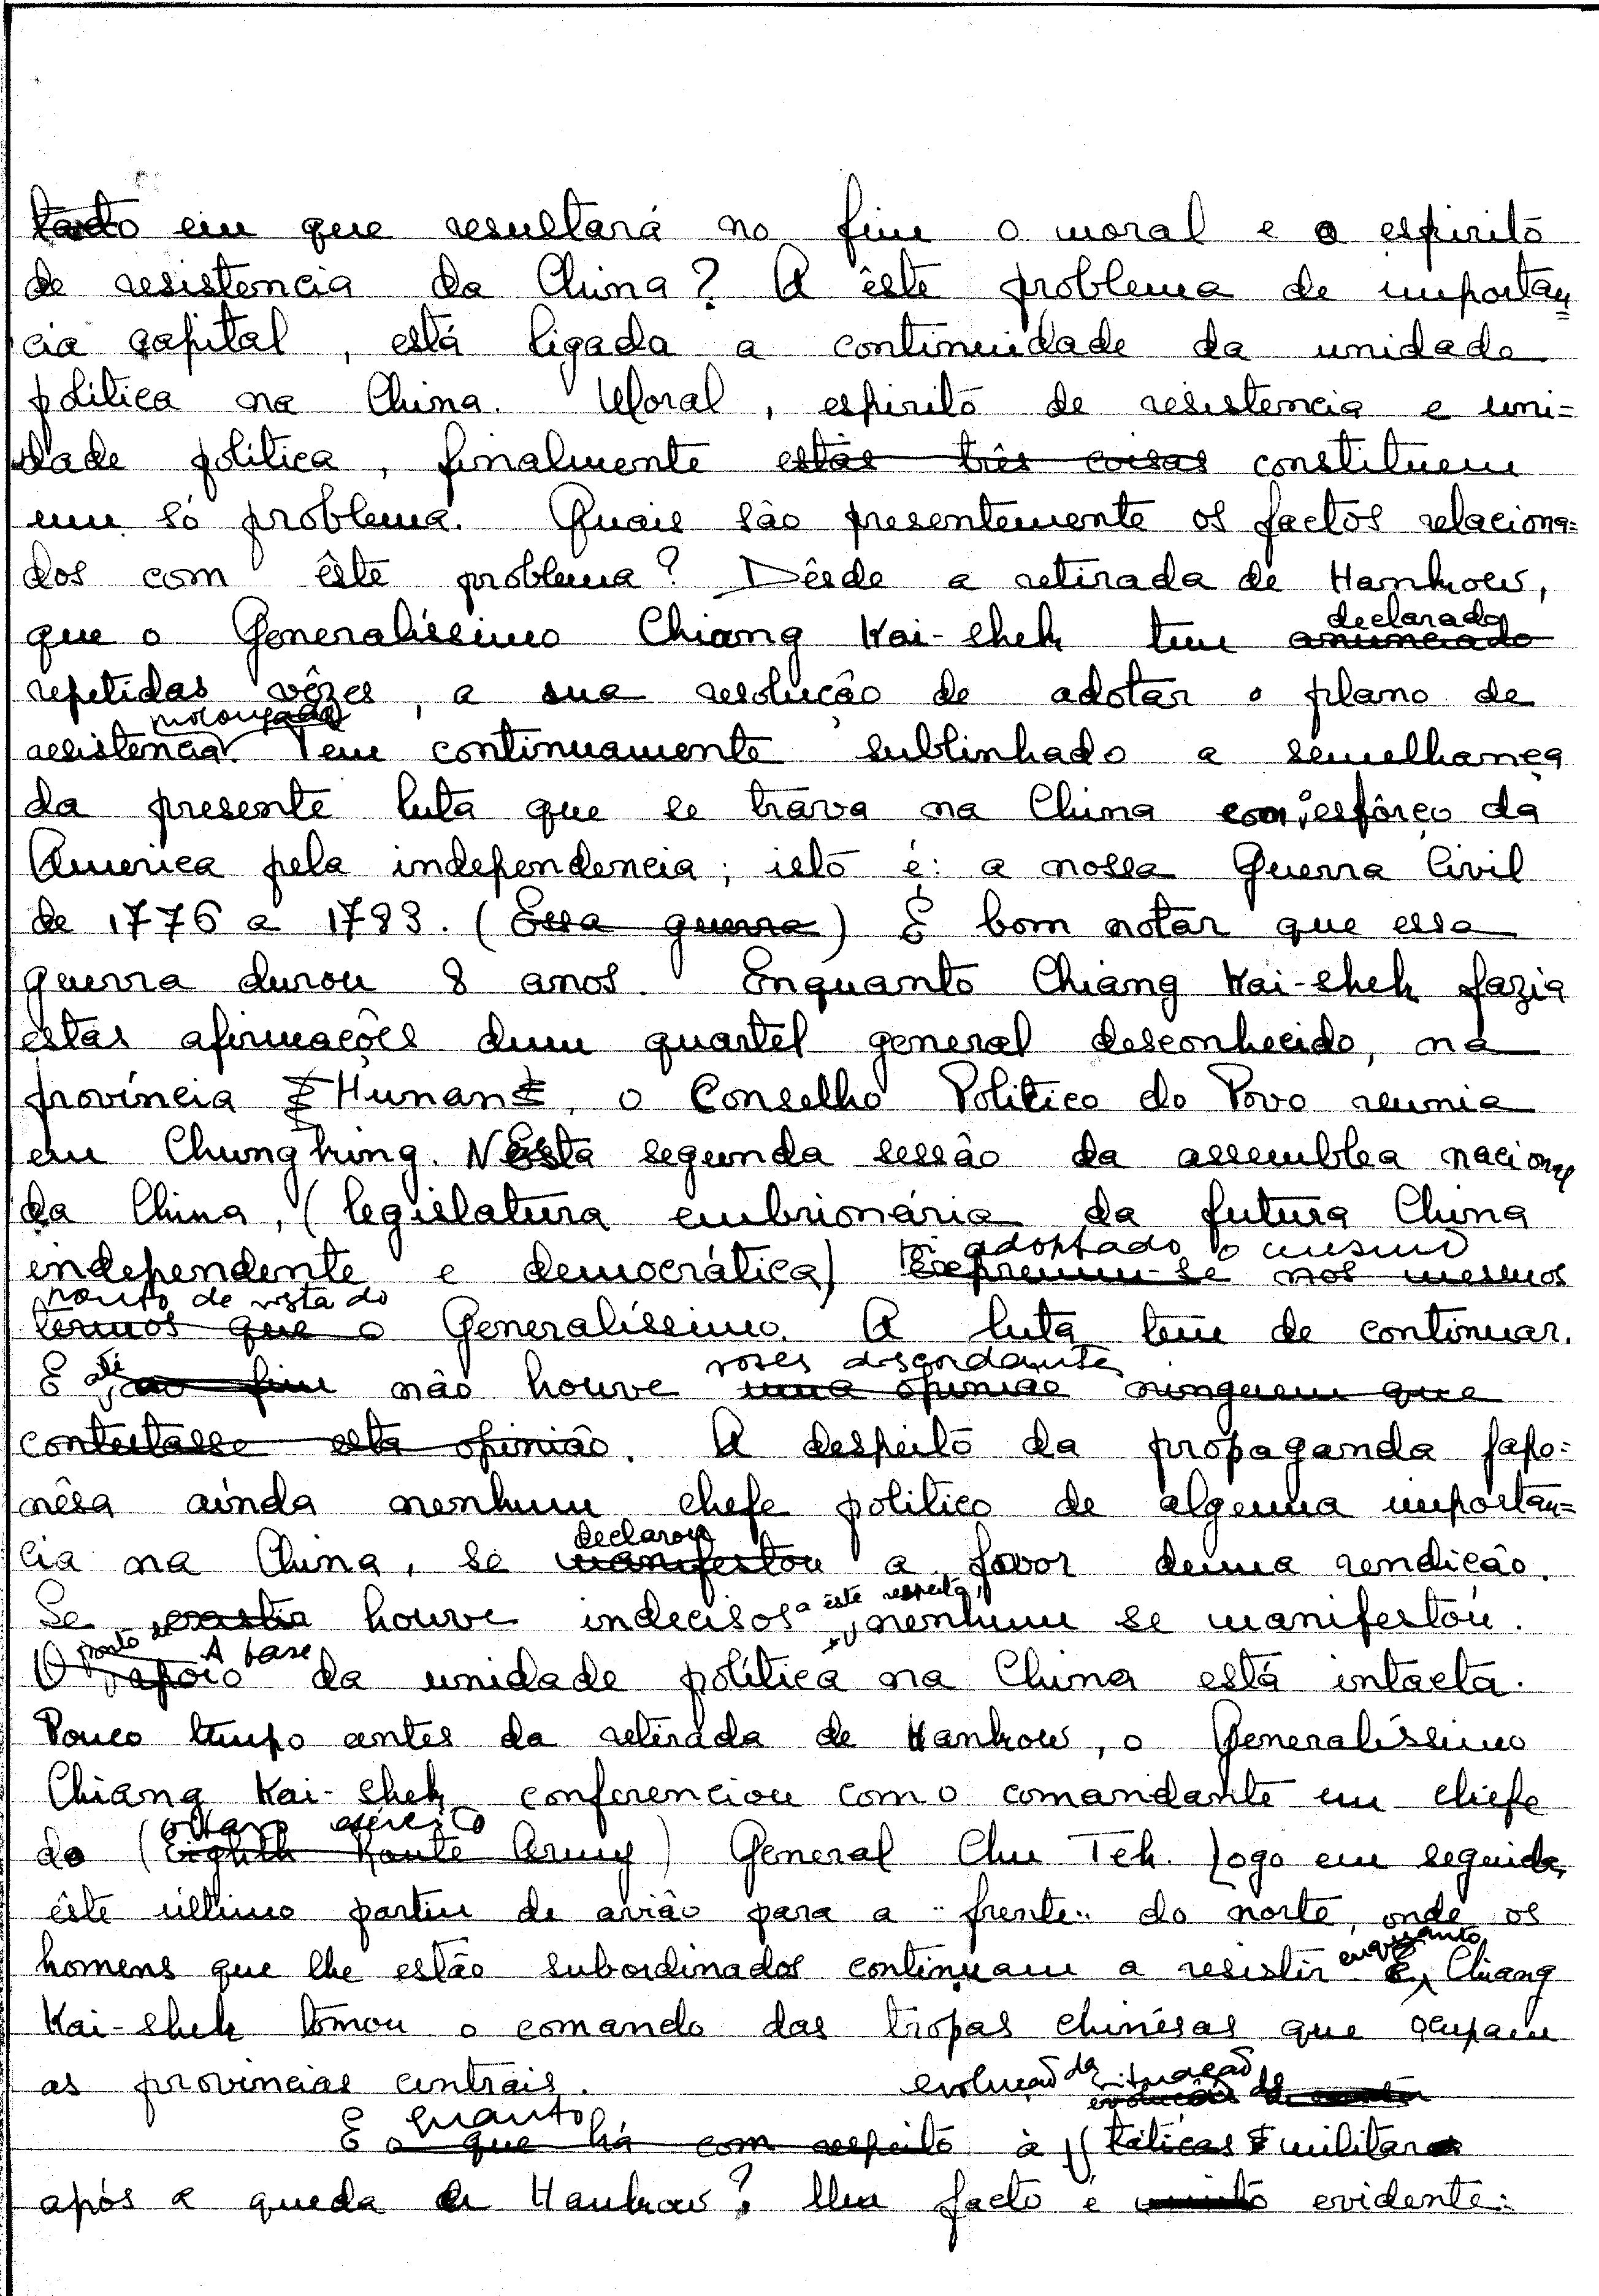 tanto em que resultará no fim o moral e o espirito
de resistencia da China? A êste problema de importan=
cia capital, está ligada a continuidade da unidade
politica na China. Moral, espirito de resistencia e uni=
dade política, finalmente estas três coisas constituem
um só problema. Quais são presentemente os factos relaciona=
dos com êste problema? Dêsde a retirada de Hankow,
declarado
que o Generalíssimo Chiang Kai-shek tem anunciado
repetidas vêzes, a sua resolução de adotar o plano de
prolongada
resistencia. Tem continuamente sublinhado a semelhança
da presente luta que se trava na China com o esfôrço da
America pela independencia; isto é: a nossa Guerra Civil
de 1776 a 1783. (Essa guerra) É bom notar que essa
guerra durou 8 anos. Enquanto Chiang Kai-shek fazia
estas afirmações dum quartel general desconhecido, na
província Hunan, o Conselho Politico do Povo reunia
em Chungking. Nesta segunda sessão da assemblea nacional
da China, (legislatura embrionária da futura China
foi adoptado o mesmo
independente e democrática) Exprimiu-se nos mesmos
ponto de vista do
termos que o Generalíssimo. A luta tem de continuar.
até vozes discordantes
E ao fim não houve uma opinião ninguem que
contestasse esta opinião. A despeito da propaganda japo=
nêsa ainda nenhum chefe politico de alguma importan=
declarou
cia na China, se manifestou a favor duma rendição.
a êste respeito,
Se existir houve indecisos, nenhum se manifestou.
ponto de A base
O apoio da unidade política na China está intacta.
Pouco tempo antes da retirada de Hankow, o Generalíssimo
Chiang Kai-shek conferenciou com o comandante em chefe
oitavo exército
do (Eighth Route Army) General Chu Teh. Logo em seguida,
êste último partiu de avião para a "frente" do norte, onde os
enquanto
homens que lhe estão subordinados continuam a resistir E Chiang
Kai-shek tomou o comando das tropas chinêsas que ocupam
as provincias centrais.
evolução da situação
evolução de
quanto
E o que há com respeito à (táticas militares
após a queda de Hankow? Um facto é muito evidente: